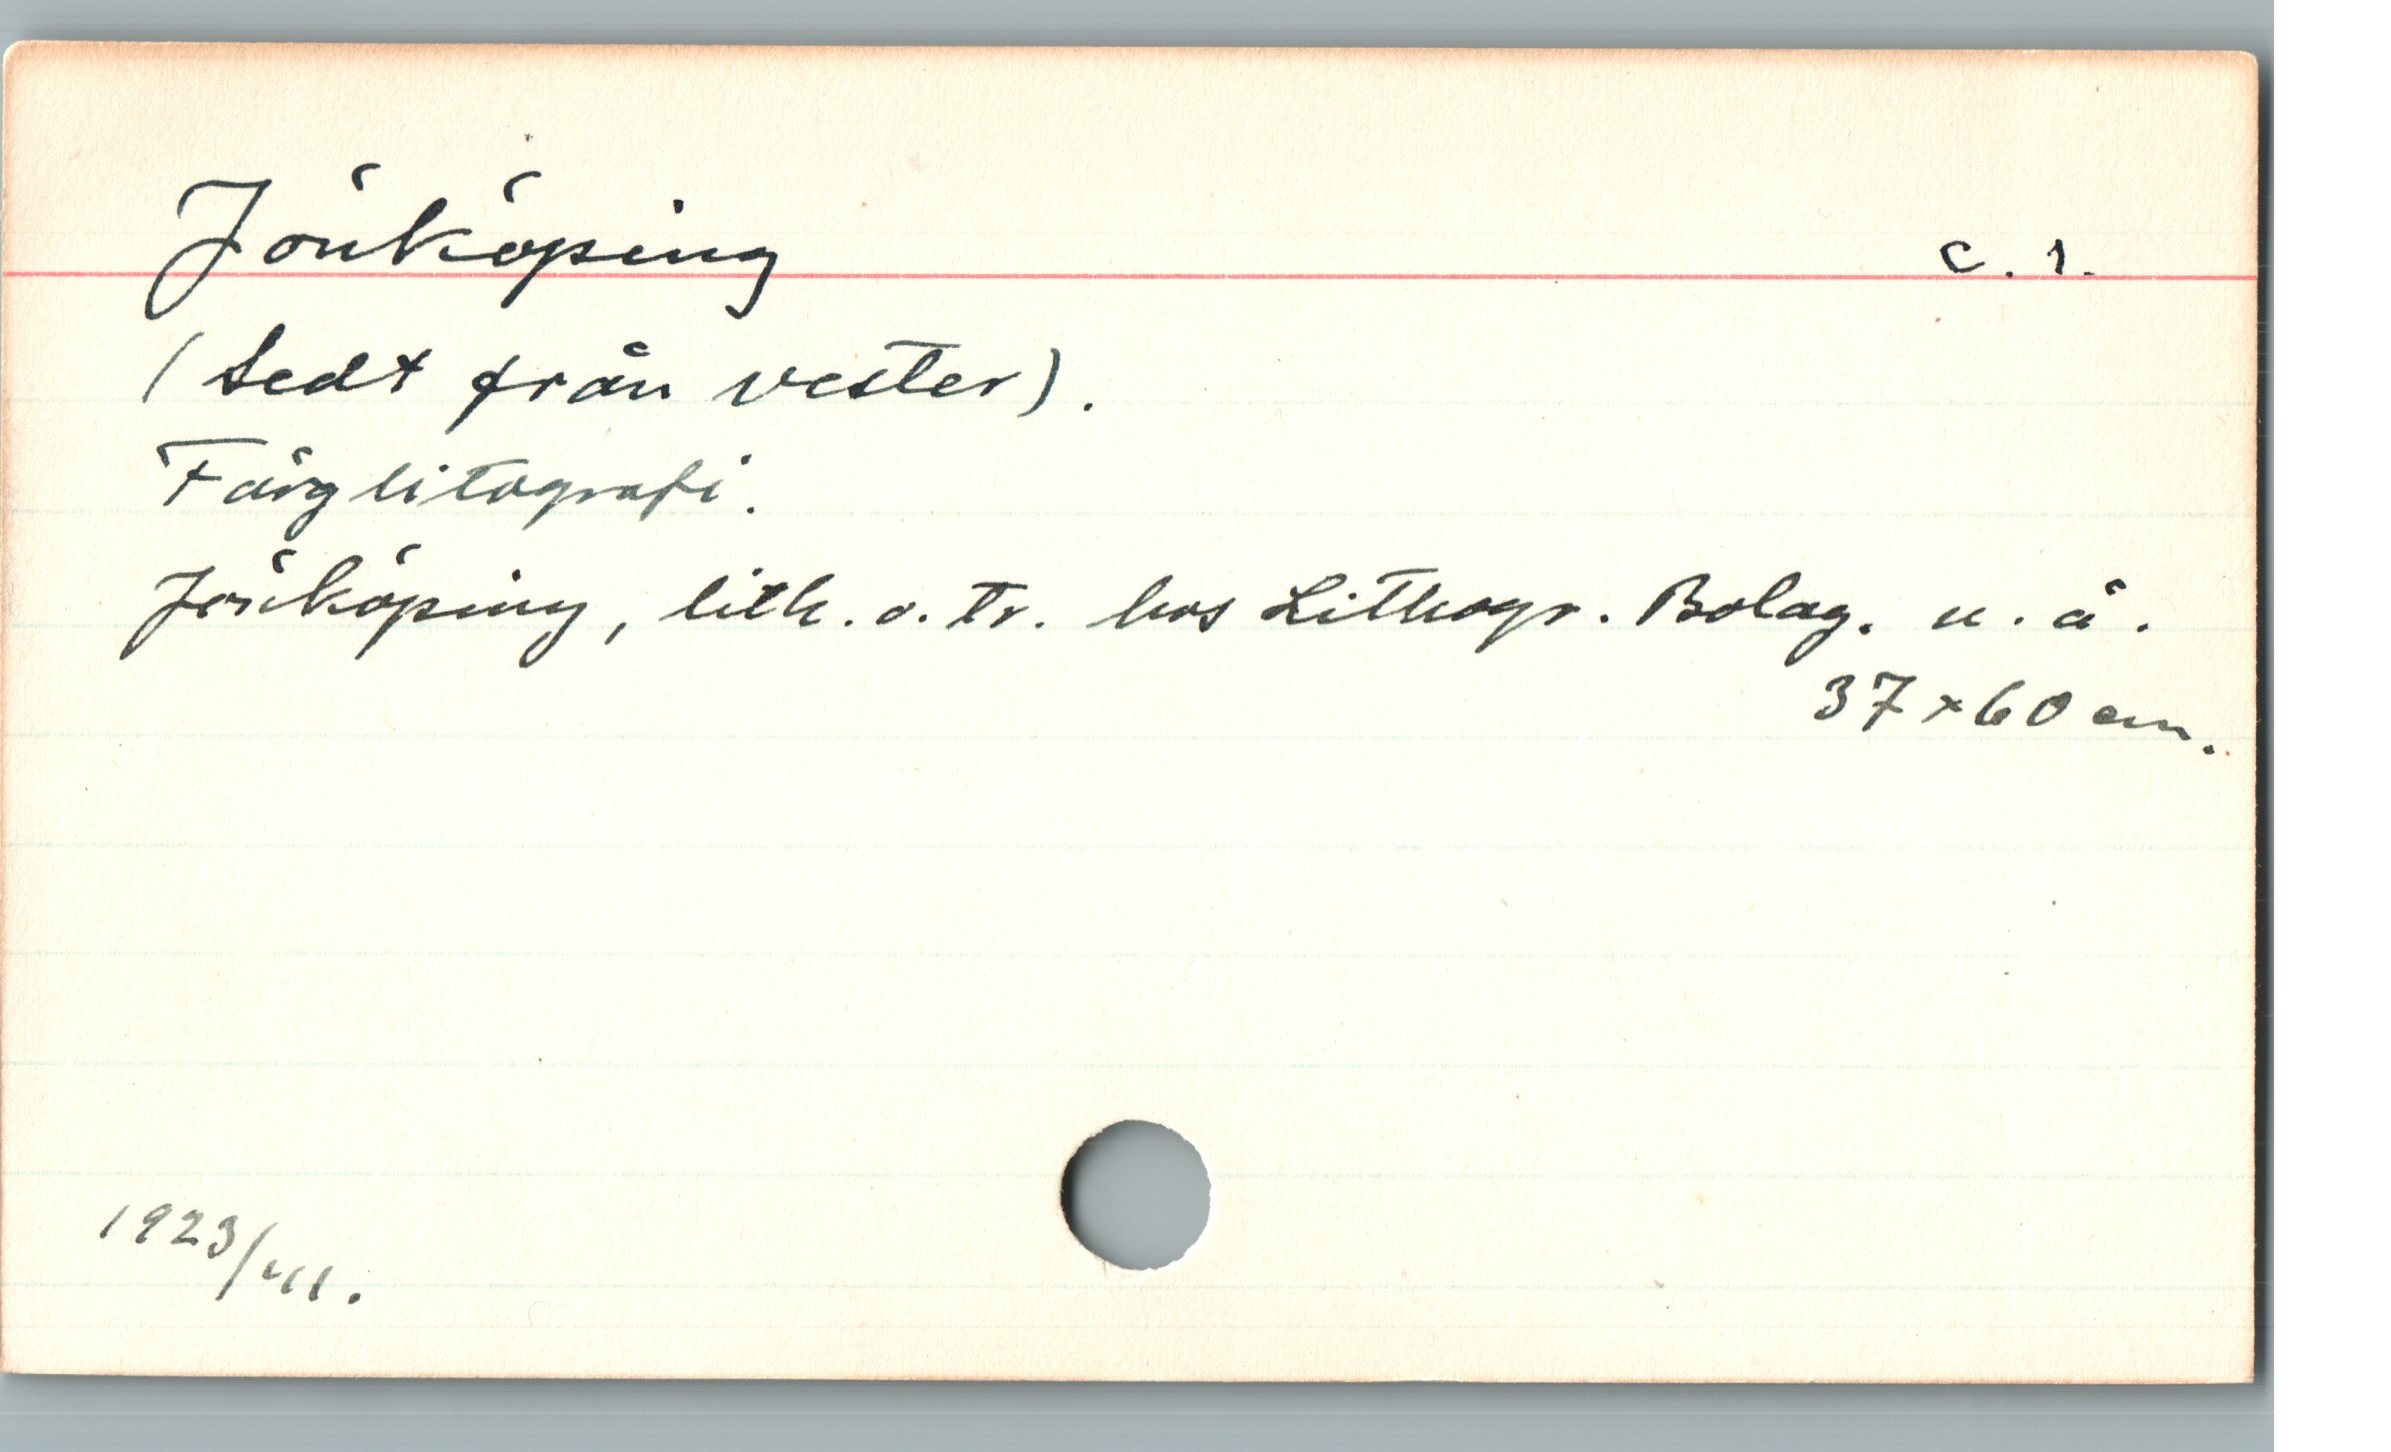 Jönköping c. 1.
(Sedt från vester).
Färglitografi.
Jönköping, lith. o. tr. hos Lithogr. Bolag. u. å.
37 × 60 cm.
1923/